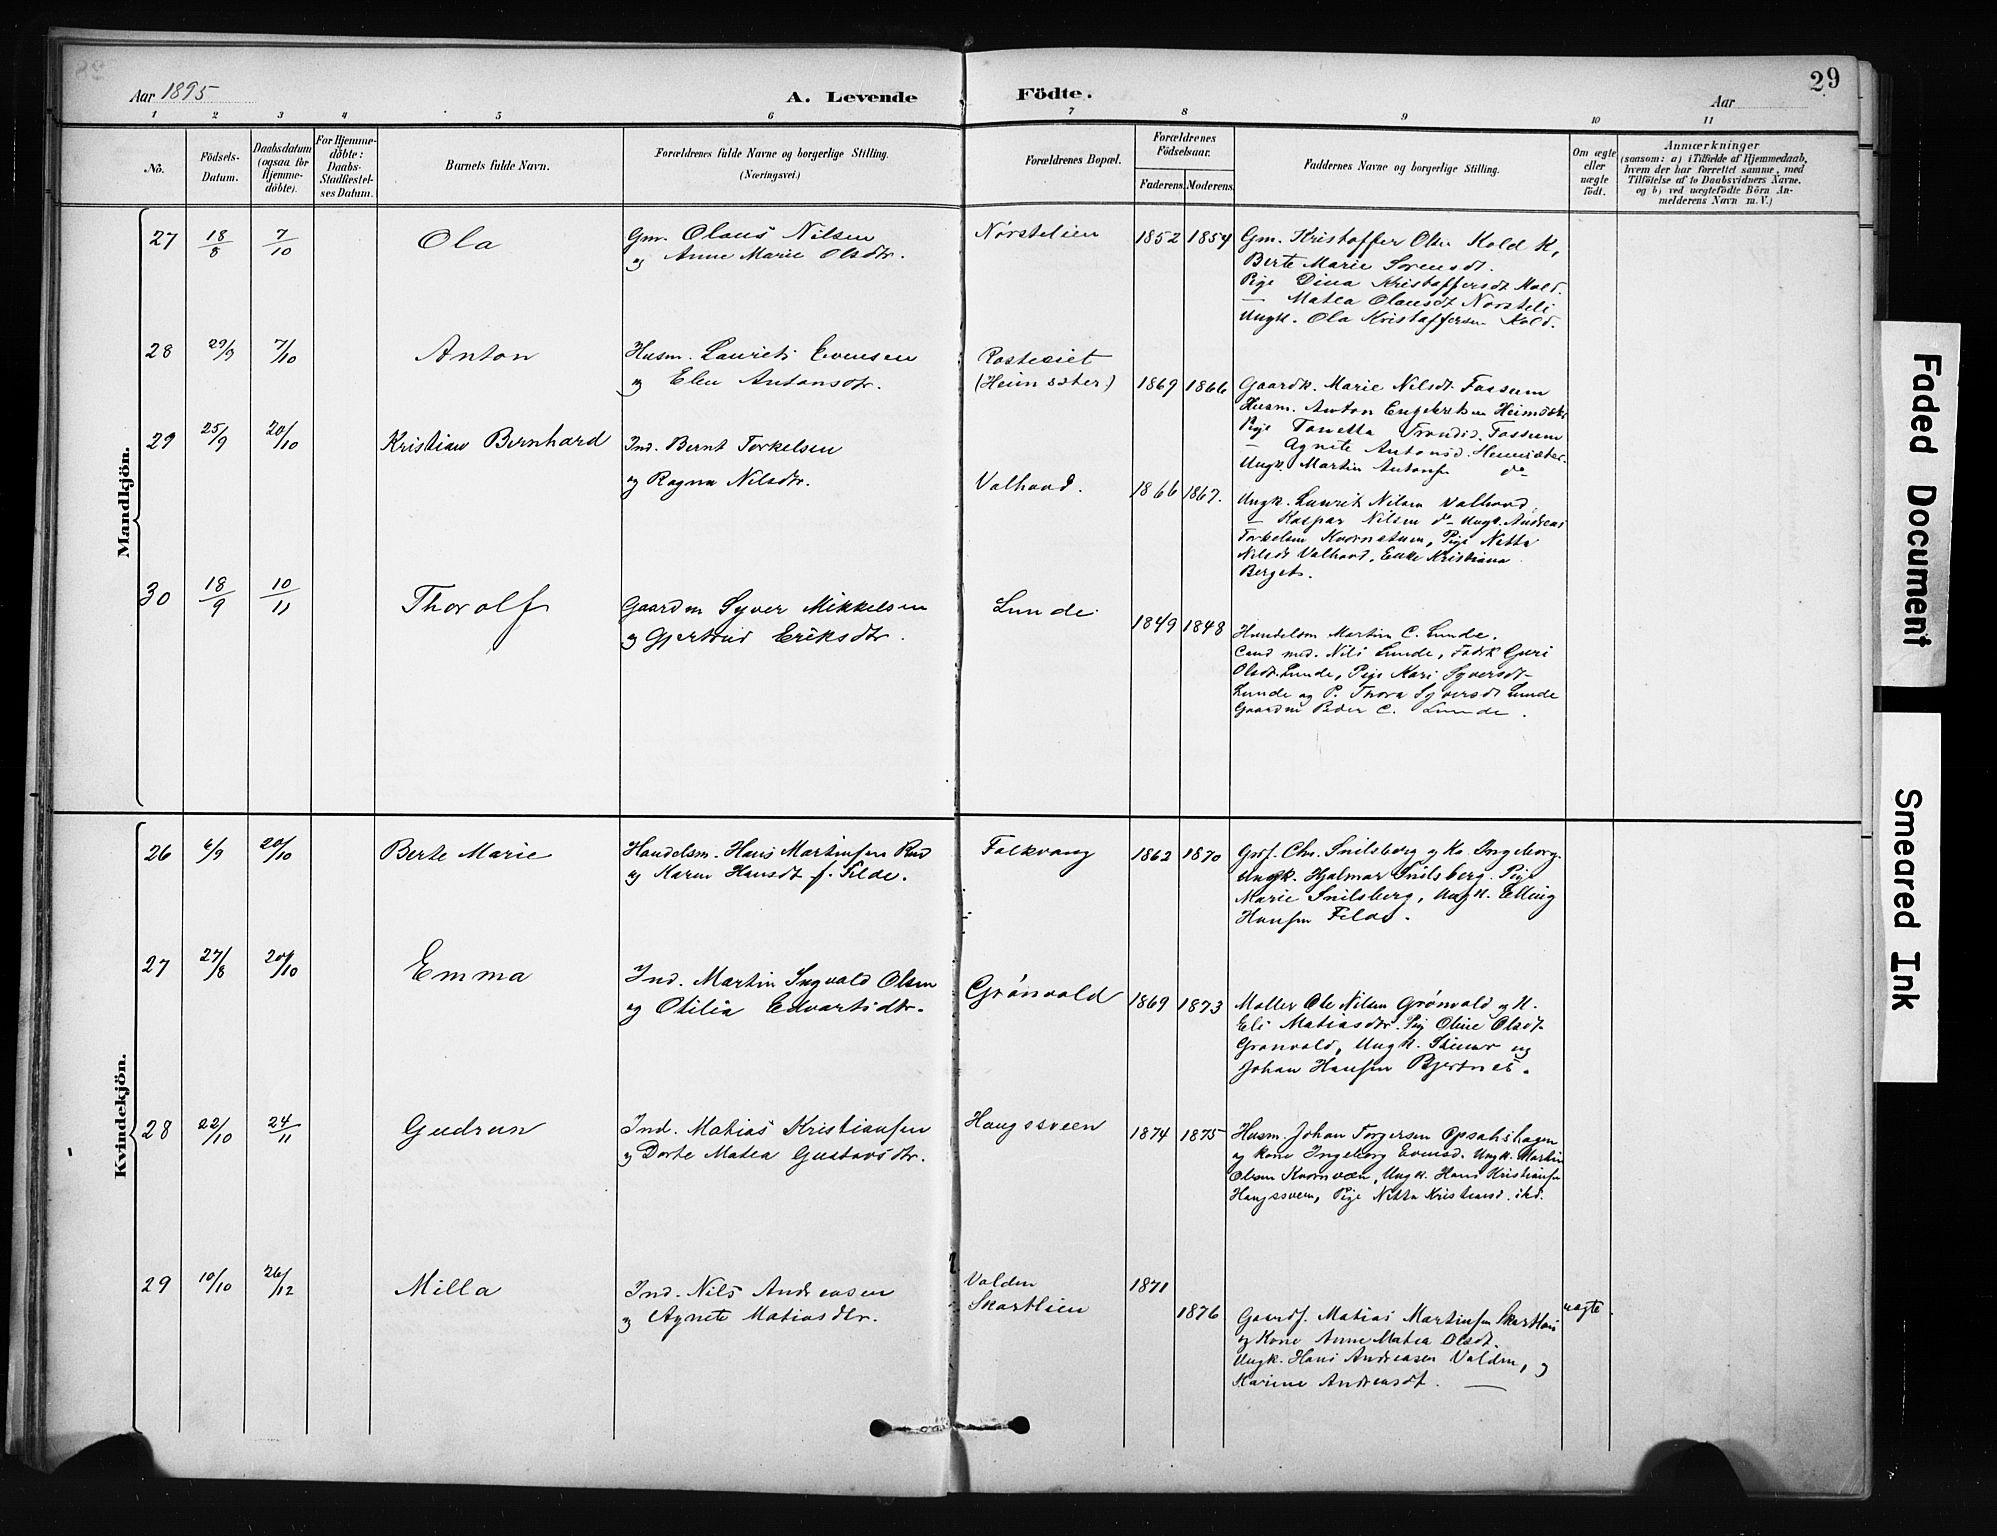 29
Aar 1895
A. Levende Födte.
Aar
1 2 3 4 5 6 7 8 9 10 11
No.
Födsels-
Datum.
Daabsdatum
(ogsaa för
Hjemme-
döbte).
For Hjemme-
döbte:
Daabs-
Stadfæstel-
ses Datum.
Barnets fulde Navn.
Forældrenes fulde Navne og borgerlige Stilling.
(Næringsvei.)
Forældrenes Bopæl.
Forældrenes
Födselsaar.
Faderens. Moderens.
Faddernes Navne og borgerlige Stilling.
Om ægte
eller
uægte
födt.
Anmærkninger
(saasom: a) i Tilfælde af Hjemmedaab,
hvem der har forrettet samme, med
Tilföielse af to Daabsvidners Navne,
og b) ved uægtefödte Börn An-
melderens Navn m. V.)
Mandkjön.
27 18/8 7/10 Ola
Gm. Olaus Nilsen
og Anne Marie Olsdtr.
Norstelien
1852 1854
Gm. Kristoffer Olsen Kold K,
Berte Marie Sørensdt.
Pige Dina Kristoffersdt Kold.
— Matea Olausdt Norsteli
Ungk. Ola Kristoffersen Kold.
28 29/9 7/10 Anton
Husm. Laurits Evensen
og Elen Antonsdtr.
(Heimsæter)
1869 1866
Gaardk. Marie Nilsdt. Fossum
Husm. Anton Engebretsen
Pige Tonetta Fossum
— Agnete Antonsd. Heimsæter.
Ungk. Martin Antonsen do
29 25/9 20/10 Kristian Bernhard
Ind. Bernt Torkelsen
og Ragna Nilsdtr.
Valhovd.
1866 1867.
Ungk. Laurits Nilsen Valhovd.
— Kaspar Nilsen do Ungk. Andreas
Torkelsen Kvernstuen, Pige Netta
Nilsdt Valhovd, Enke Kristiana
Berget.
30 18/9 10/11 Thorolf
Gaardm Syver Mikkelsen
og Gjertrud Eriksdtr.
Lunde
1849 1848
Handelsm Martin C. Lunde.
Cand med. Nils Lunde, Guri
Olsdt. Lunde, Pige Kari Syversdt
Lunde og P. Thora Syversdt Lunde
Gaardm Peder C. Lunde.
Kvindekjön.
26 6/9 20/10 Berte Marie
Handelsm. Hans Martinsen Rud
og Karen Hansdt f. Filde.
Falkvang
1862 1870
Chr. Snilsberg og Ko Ingeborg.
Ungk. Hjalmar Snilsberg. Pige
Marie Snilsberg, Ungk. Elling
Hansen
27 27/8 20/10 Emma
Ind. Martin Ingvald Olsen
og Otilia Edvartsdtr.
Grønvold
1869 1873
Møller Ole Nilsen Grønvold og K.
Eli Matiasdtr. Pig Oline Olsdt
Grønvold, Ungk. Steinar og
Johan Hansen Bjertnes.
28 22/10 24/11 Gudrun
Ind. Matias Kristiansen
og Dorte Matea Gustavsdtr.
Haugssveen
1874 1875
Husm. Johan Torgersen Opsahlshagen
og kone Ingeborg Evensd. Ungk. Martin
Olsen Kvernveen, Ungk. Hans Kristiansen
Haugssveen, Pige Netta Kristiansd. ibd.
29 10/10 26/12 Milla
Ind. Nils Andreasen
og Agnete Matiasdtr.
Valden
Skartlien
1871
1876
Gaardf. Matias Martinsen Skartlien
og Kone Anne Matea Olsdt.
Ungk. Hans Andreasen Valden, og
Karine Andreasdt. —
uægte.
Faded Document
Smeared Ink